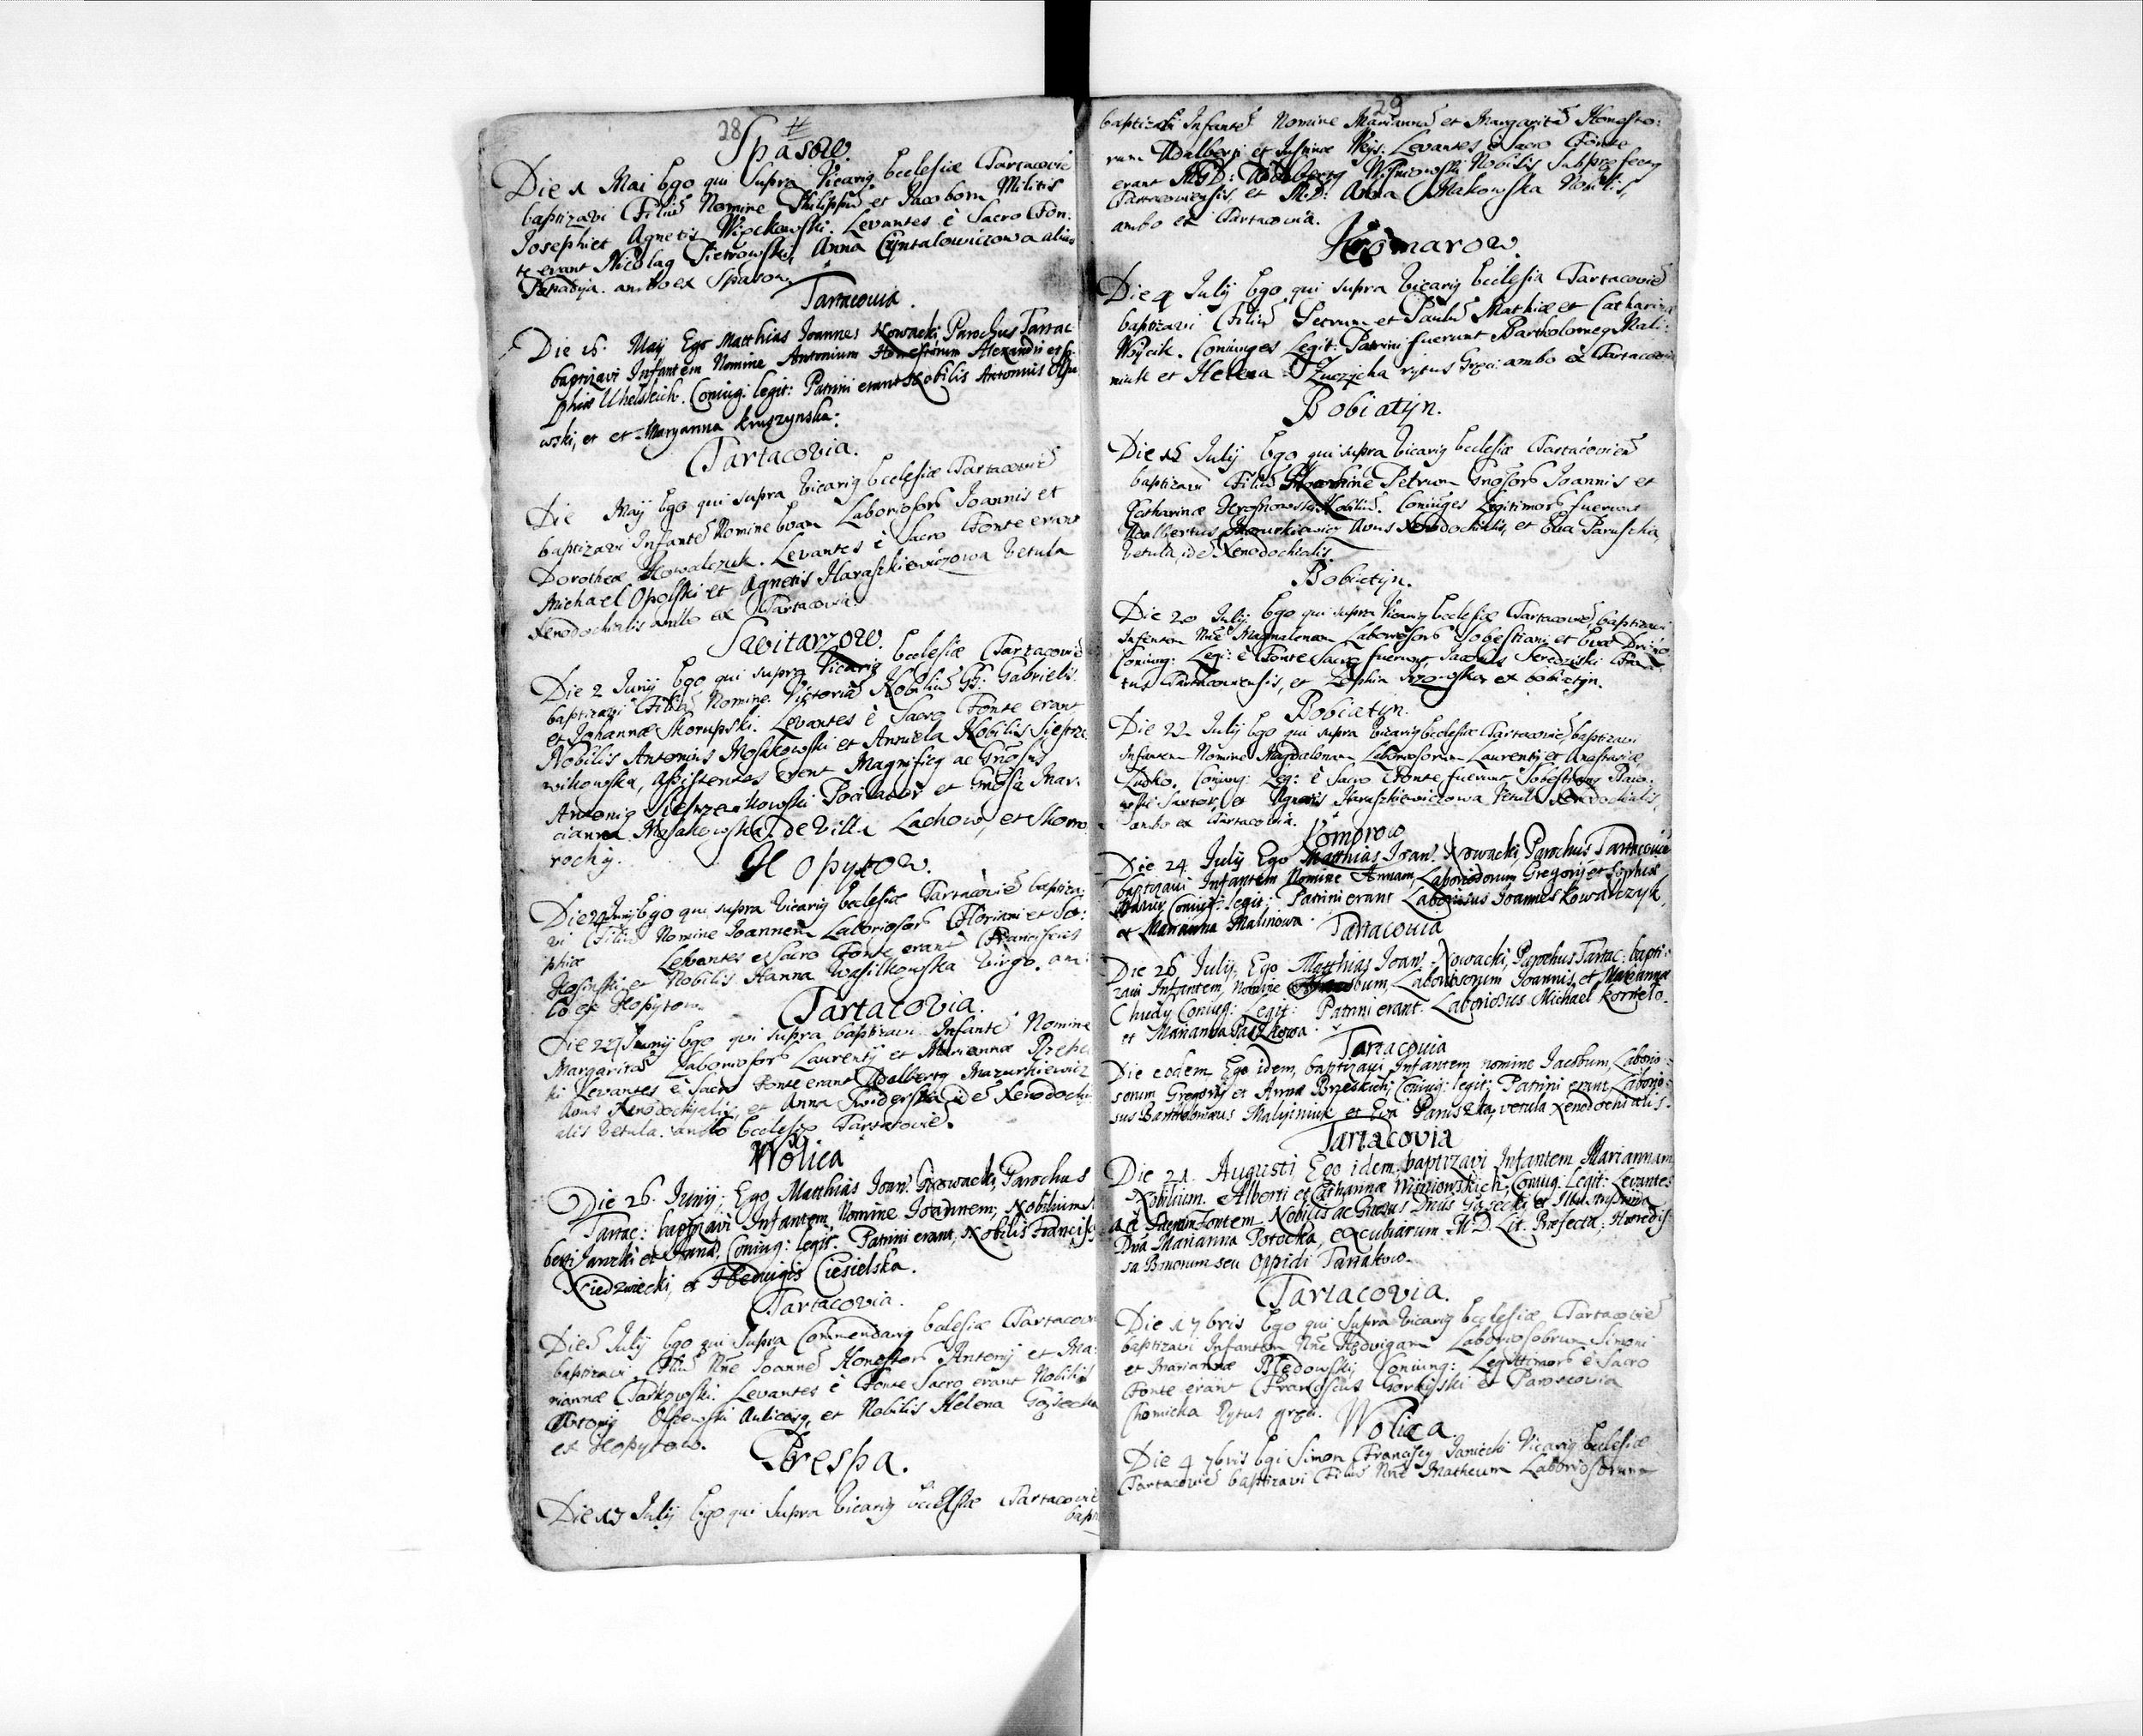 28
Spasow.
Die 1 Mai Ego qui supra Vicarig Ecclesiæ Tartacovie
baptizavi Filiu Nomine Philippu et Jacobum Militis
Josephi et Agnetis Levantes è Sacro Fon:
te erant Nicolag Pietrowski, Anna alias
ambo ex Spasow.
Tartacovia.
Die 15. Maij Ego Matthias Joannes Nowacki Parochus Tartac
baptizavi Infantem Nomine Antonium Honestorum Alexandri et So
phiæ Coniug: legit: Patrini erant Nobilis Antonius
wski, et et Maryanna Kruszynska:
Tartacovia.
Die Maij Ego qui supra Vicarig Ecclesiæ Tartacovie
baptizavi Infante Nomine Evam Laboriosor Joannis et
Dorotheæ Kowalczuk. Levantes è Sacro Fonte erant
Michael Opolski et Agnetis Haraszkiewiczowa Vetula
Xenodochialis ambo ex Tartacovia.
Switarzow.
Die 2 Junij Ego qui supra Vicarig Ecclesiæ Tartacovie
baptizavi Filia Nomine Victoria Nobiliu Gabrielis
et Johannæ Skorupski. Levantes è Sacro Fonte erant
Nobilis Antonius Mosakowski et Anniela Nobilis Siestrze
wikowska, Assistentes erant Magnificg ac Gnosus
Antonig et Gnosa Mar:
cianna Mosakowska, de Villa Lachow, et Skomo
rochy.
Kopytow.
Die 24 Junij Ego qui supra Vicarig Ecclesiæ Tartacovie baptiza:
vi Filiu Nomine Joannem Laboriosor Floriani et So:
phiæ Levantes è Sacro Fonte erant Franciscus
Kosinski et Nobilis Hanna Wasilkowska Virgo. am:
bo ex Kopytow.
Tartacovia.
Die 24 Junij Ego qui supra baptizavi Infante Nomine
Margarita Laboriosor Laurentij et Mariannæ
ki Levantes è Sacro Fonte erant Adalbertg Mazurkiewicz
Avus Xenodochialis, et Anna Swiderska ide Xenodochi
alis Vetula. ambo Ecclesiæ Tartacovie.
Wolica
Die 26. Junij; Ego Matthias Joan: Nowacki, Parochus
Tartac: baptizavi Infantem Nomine Joannem, Nobilium
berti Janicki et Anna, Coniug: legit: Patrini erant, Nobilis Francis:
Niedzwiecki, et Hedwigis Ciesielska.
Tartacovia.
Die 5 July Ego qui Supra Commendarig Ecclesiæ Tartacov
baptizavi Filiu Nne Joanne Honestor Antonij et Ma:
riannæ Tarkowski. Levantes è Fonte Sacro erant Nobilis
Antonig Aulicosg, et Nobilis Helena
ex Kopytow.
Perespa.
Die 13 July Ego qui supra Vicarig Ecclesiæ Tartacovie
bapti
29
baptizavi Infante Nomine Marianna et Margarita Honesto:
rum Adalberti et Justinæ Levantes è Sacro Fonte
erant M.G.D: Adalbertg Wisniowski Nobilis Subprefectg
Tartacoviensis, et M.D: Anna Makowska Nobilis,
ambo ex Tartacovia.
Komarow.
Die 4 July Ego qui supra Vicarig Ecclesia Tartacovie
baptizavi Filiu Petrum et Paulu Mathiæ et Catharina
Woycik. Coniuges Legit: Patrini fuerunt Bartholomeg Mali:
niuk et Helena rytus Græci ambo ex Tartacovia
Bobiatyn.
Die 15 July Ego qui supra Vicarig Ecclesiæ Tartacovien
baptizavi Filiu Nomine Petrum Gnosor Joannis et
Catharinæ Nobiliu. Coniuges Legitimor fuerunt
Adalbertus Mazurkiewicz Avus Xenodochialis, et Eva Paruska,
Vetula ide Xenodochialis.
Bobiatyn.
Die 20 July Ego qui supra Vicarig Ecclesiæ Tartacovie, baptizavi
Infantem Nne Magdalenam Laboriosor Sobestiani et Evæ
Coniug: Leg: è Fonte Sacro fuerunt, Jacobus
tus Tartacoviensis, et Zophia ex Bobiatyn.
Bobiatyn.
Die 22 July Ego qui supra Vicarig Ecclesiæ Tartacovie baptizavi
Infantem Nomine Magdalenam Laboriosorum Laurentij et Anastasiæ
Coniug: Leg: è Sacro Fonte fuerunt Sobestiang
Sartor, et Agnetis Haraszkiewiczowa Vetula Xenodochialis,
ambo ex Tartacovia.
Komorow
Die 24 July Ego Matthias Joan: Nowacki, Parochus Tartacoviæ
baptizavi Infantem Nomine Annam, Laboriosorum Gregorij et Sophiæ
Coniug: legit: Patrini erant Laboriosus Joannes Kowalczyk,
et Marianna Malinowa
Tartacovia
Die 26 July, Ego Matthias Joan: Nowacki, Parochus Tartac: bapti:
zavi Infantem, Nomine Laboriosorum Joannis, et Mariannæ
Chudy Coniug: Legit: Patrini erant. Laboriosus Michael
et Marianna Paszkowa.
Tartacovia
Die eodem Ego idem, baptizavi Infantem nomine Jacobum, Laborio:
sorum Gregorij et Anna Coniug: legit; Patrini erant, Laborio:
sus Bartholomæus Maliiniuk et Eva Paruszka, vetula xenodochialis.
Tartacovia
Die 21. Augusti, Ego idem, baptizavi Infantem Mariannam
Nobilium. Alberti et Catharinæ Wisniowskich, Coniug: Legit: Levantes
ad Sacrum Fontem, Nobilis ac Gnosus Dnus Gosecki, et Illustrissima
Dna Marianna Potocka, excubiarum M.D. Lit. Præfecta; Hæredis:
sa Bonorum seu Oppidi Tartakow.
Tartacovia.
Die 1 7bris Ego qui supra Vicarig Ecclesiæ Tartacovie
baptizavi Infantem Nne Hedvigam Laboriosorum Simoni
et Mariannæ Coniung: Legittimor è Sacro
Fonte erant Franciscus Gorliski et Parascovia
Chomicka Rytus græci.
Wolica.
Die 4 7bris Ego Simon Franciscg Janiecki Vicarig Ecclesiæ
Tartacovie baptizavi Filiu Nne Matheum Laboriosorum